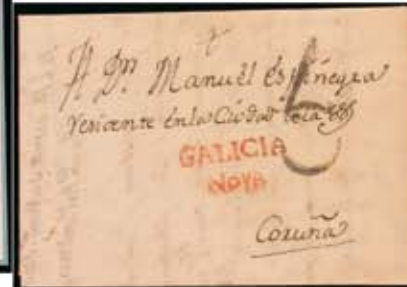 A Dn. Manuel Espiñeyra
Residente en la Ciudad de la
GALICIA
NOYA
Coruña